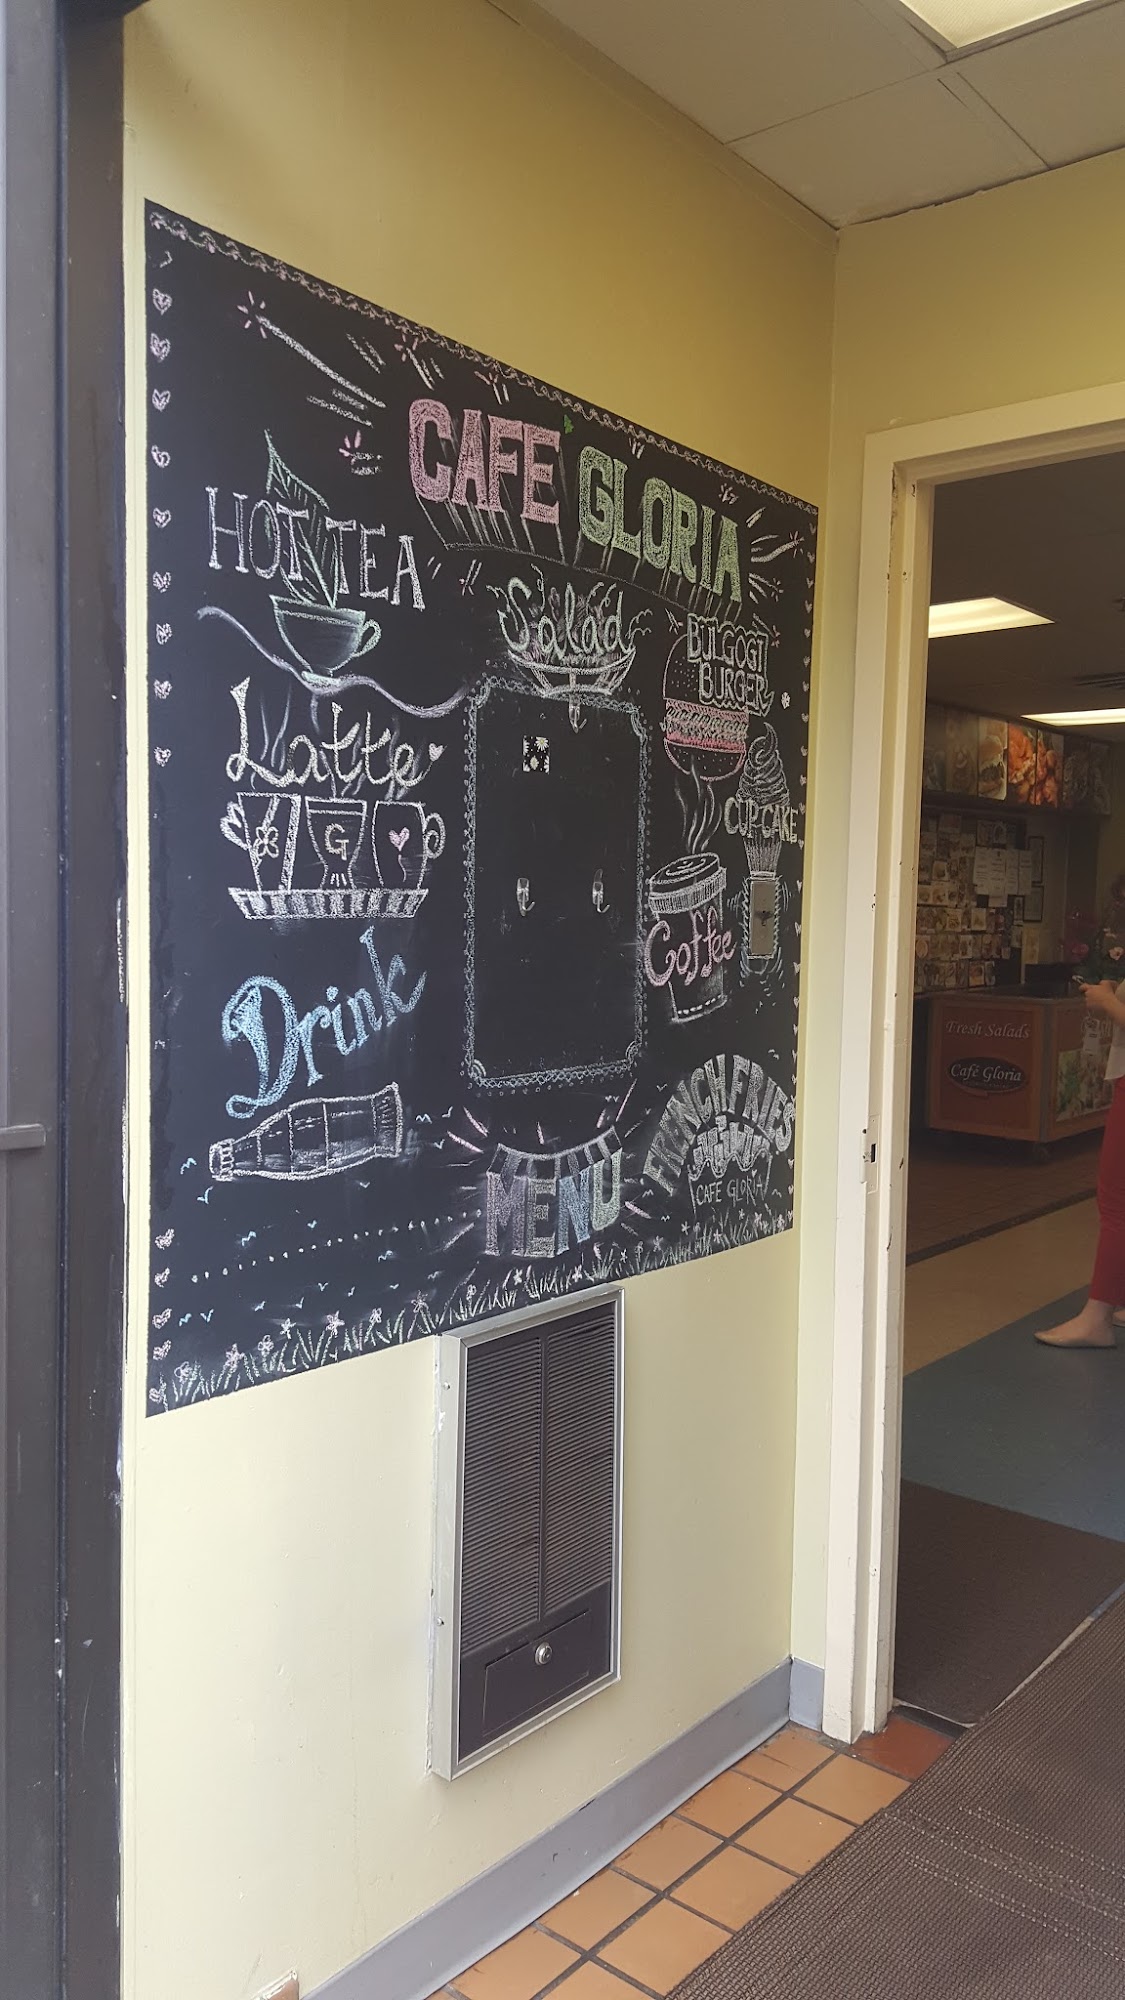 CAFE GLORIA
HOT TEA
Salad
BULGOGI
BURGER
Latte
G
CUPCAKE
Coffee
Drink
FRENCH FRIES
CAFE GLORIA
MENU
Fresh Salads
Café Gloria